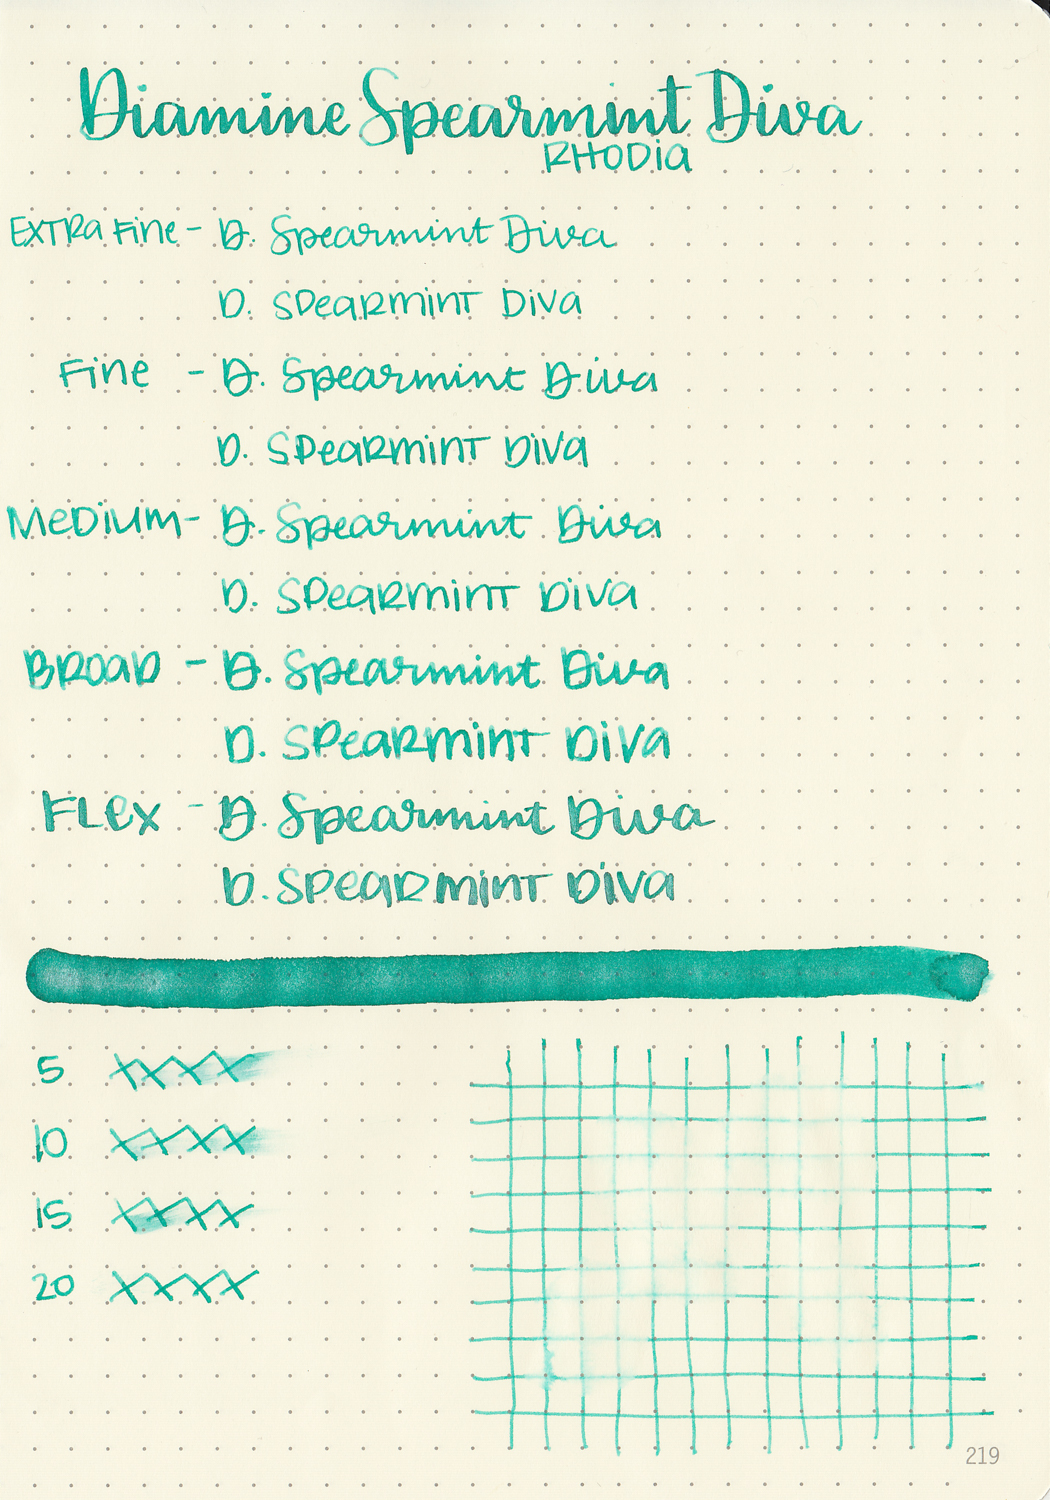 Diamine Spearmint Diva
RHODIA
EXTRA FINE - D. Spearmint Diva
D. SPEARMINT DIVA
Fine - D. Spearmint Diva
D. SPEARMINT DIVA
MEDIUM - D. Spearmint Diva
D. SPEARMINT DIVA
BROAD - D. Spearmint Diva
D. SPEARMINT DIVA
FLEX - D. Spearmint Diva
D. SPEARMINT DIVA
5 XXXX
10 XXXX
15 XXXX
20 XXXX
219